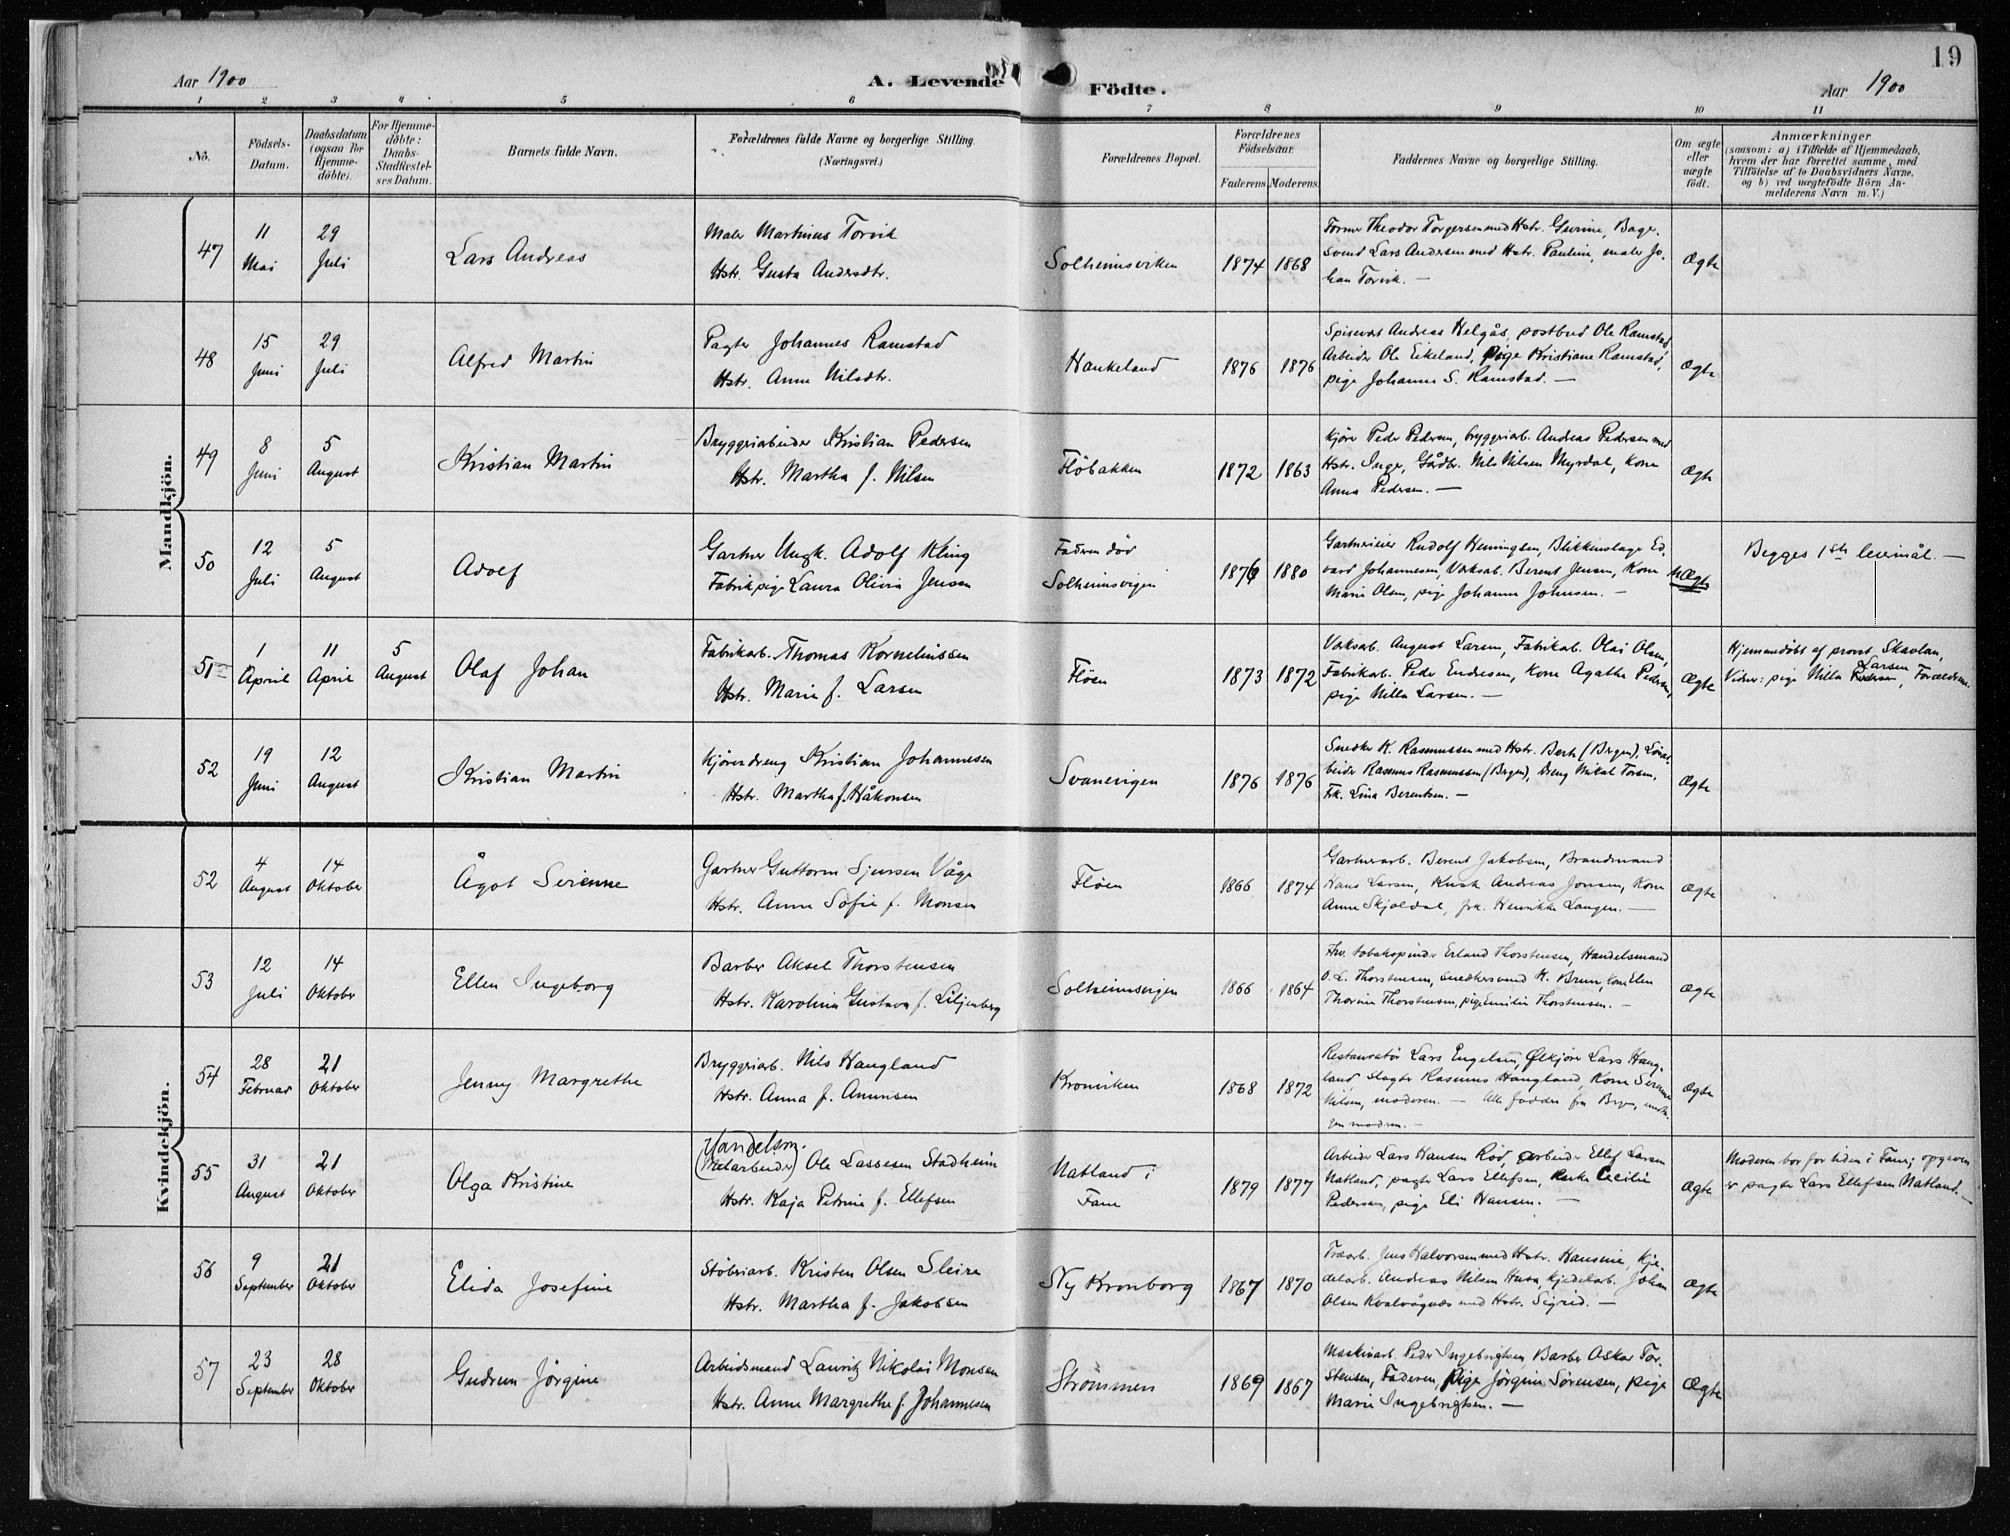 19
Aar 1900
A. Levende Födte.
Aar 1900
1 2 3 4 5 6 7 8 9 10 11
No.
Födsels-Datum.
Daabsdatum (ogsaa for Hjemme-döbte).
For Hjemme-döbte: Daabs-Stadfæstel-ses Datum.
Barnets fulde Navn.
Forældrenes fulde Navne og borgerlige Stilling.
(Næringsvei.)
Forældrenes Bopæl.
Forældrenes Födselsaar.
Faderens Moderens
Faddernes Navne og borgerlige Stilling.
Om ægte eller uægte födt.
Anmærkninger
(saasom: a) i Tilfælde af Hjemmedaab,
hvem der har forrettet samme, med
Tilföielse af to Daabsvidners Navne,
og b) ved uægtefödte Börn An-
melderens Navn m. V.)
Mandkjön.
47
11 Mai
29 Juli
Lars Andreas
Maler Martinus Torvik
Hstr. Gusta Andersdtr.
Solheimsviken
1874 1868
Former Theodor Torgersen med Hstr. Gurine, Bage-
svend Lars Andersen med Hstr. Pauline, maler Jo-
han Torvik. —
Ægte
48
15 Juni
29 Juli
Alfred Martin
Pagter Johannes Ramstad
Hstr. Anne Nilsdtr.
Haukeland
1876 1876
Spisevært Andreas Helgås, postbud Ole Ramstad,
Arbeider Ole Eikeland, pige Kristiane Ramstad,
pige Johanne S. Ramstad. —
Ægte
49
8 Juni
5 August
Kristian Martin
Bryggeriarbeider Kristian Pedersen
Hstr. Martha f. Nilsen
Flöbakken
1872 1863
Kjörer Peder Pedersen, bryggeriarb. Andreas Pedersen med
Hstr. Inge, Gådbr. Nils Nilsen Myrdal, Kone
Anna Pedersen. —
Ægte
50
12 Juli
5 August
Adolf
Gartner Ungk. Adolf Kling
Fabrikpige Laura Olivia Jensen
Faderen död
Solheimsvigen
1876 1880
Gartnereier Rudolf Henningsen, Blikkenslager Ed-
vard Johannesen, Værksarb. Berent Jensen, Kone
Marie Olsen, pige Johanne Johnsen. —
uÆgte
Begges 1ste leiermål. —
51
1 April
11 April
5 August
Olaf Johan
Fabrikarb. Thomas Kornelinssen
Hstr. Marie f. Larsen
Flöen
1873 1872
Værksarb. August Larsen, Fabrikarb. Olai Olsen,
Fabrikarb. Peder Endresen, Kone Agathe Pedersen,
pige Milla Larsen. —
Ægte
Hjemmedöbt af provst Skavlan,
Vidner: pige Milla Larsen, Forældrene.
52
19 Juni
12 August
Kristian Martin
Kjöredreng Kristian Johannesen
Hstr. Martha f. Håkonsen
Svanevigen
1876 1876
Snedker K. Rasmussen med Hstr. Berte (Bergen),
beider Rasmus Rasmussen (Bergen), Dreng Mikal Torsen,
Frk. Lina Berentsen. —
Ægte
Kvindekjön.
52
4 August
14 Oktober
Ågot Serienne
Gartner Guttorm Sjursen Våge
Hstr. Anne Sofie f. Monsen
Flöen
1866 1874
Gartnerarb. Berent Jakobsen, Brandmand
Hans Larsen, Kusk Andreas Jonsen, Kone
Anne Skjoldal, frk. Henrikke Langen. —
Ægte
53
12 Juli
14 Oktober
Ellen Ingeborg
Barber Aksel Thorstensen
Hstr. Karolina Gustava f. Liljenberg
Solheimsvigen
1866 1864
Fhv. tobakspinder Erland Thorstensen, Handelsmand
O. L. Thorstensen, snedkersvend K. Brun, Kone Elen
Thorine Thorstensen, pige Emilie Thorstensen. —
Ægte
54
28 Februar
21 Oktober
Jenny Margrethe
Bryggeriarb. Nils Haugland
Hstr. Anna f. Amunsen
Kronviken
1868 1872
Restauratör Lars Engelsen, Ölkjörer Lars Haug-
land, Slagter Rasmus Haugland, Kone Serianne
Nilsen, moderen. — Alle faddere fra Bergen, undta-
gen modren. —
Ægte
55
31 August
21 Oktober
Olga Kristine
Handelsm.
(Melarbeider) Ole Lassesen Stadheim
Hstr. Kaja Petrine f. Ellefsen
Natland i
Fane
1879 1877
Arbeider Lars Hansen Röd, arbeider Ellef Larsen
Natland, pagter Lars Ellefsen, Enke Cecilie
Pedersen, pige Eli Hansen. —
Ægte
Moderen bor for tiden i Fane; opgiven
er pagter Lars Ellefsen Natland. —
56
9 September
21 Oktober
Elida Josefine
Stöberiarb. Kristen Olsen Sleire
Hstr. Martha f. Jakobsen
Ny Kronborg
1867 1870
Træarb. Jens Halvorsen med Hstr. Hansine, Kje-
delarb. Andreas Nilsen Husa, Kjedelarb. Johan
Olsen Kvalvågnæs med Hstr. Sigrid. —
Ægte
57
23 September
28 Oktober
Gudrun Jörgine
Arbeidsmand Lauritz Nikolai Monsen
Hstr. Anne Margrethe f. Johannesen
Strömmen
1869 1867
Maskinarb. Peder Ingebrigtsen, Barber Oskar Tor-
stensen, Faderen, Pige Jörgine Sörensen, pige
Marie Ingebrigtsen. —
Ægte